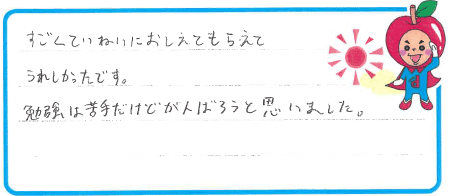 すごくていねいにおしえてもらえて
うれしかったです。
勉強は苦手だけどがんばろうと思いました。